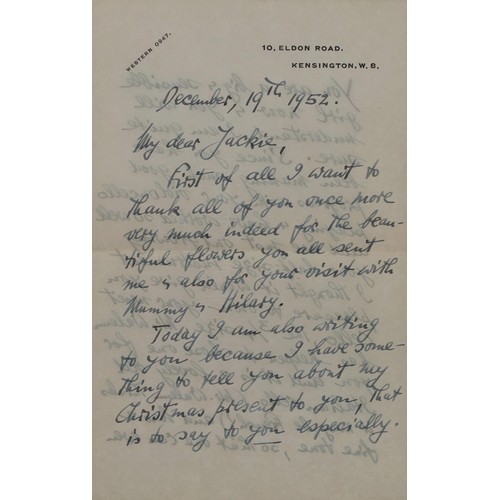 WESTERN 0947.
10, ELDON ROAD.
KENSINGTON, W. 8.
December, 19th 1952.
My dear Jackie,
First of all I want to
thank all of you once more
very much indeed for the beau-
tiful flowers you all sent
me & also for your visit with
Mummy & Hilary.
Today I am also writing
to you because I have some-
thing to tell you about my
Christmas present to you, that
is to say to you especially.